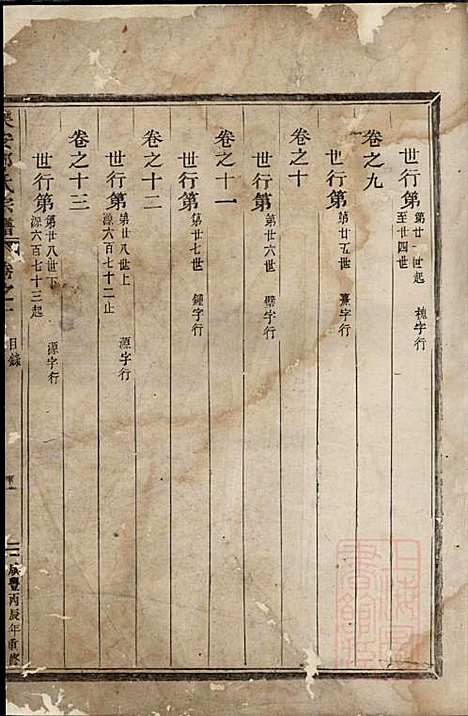 世行第 第廿一世起 至廿四世 槐字行
卷之九
世行第 第廿五世 燾字行
卷之十
世行第 第廿六世 壁字行
卷之十一
世行第 第廿七世 鍾字行
卷之十二
世行第 第廿八世上 源六百七十二止 源字行
卷之十三
世行第 第廿八世下 源六百七十三起 源字行
氏宗譜 卷之一 目錄 咸豐丙辰年重修